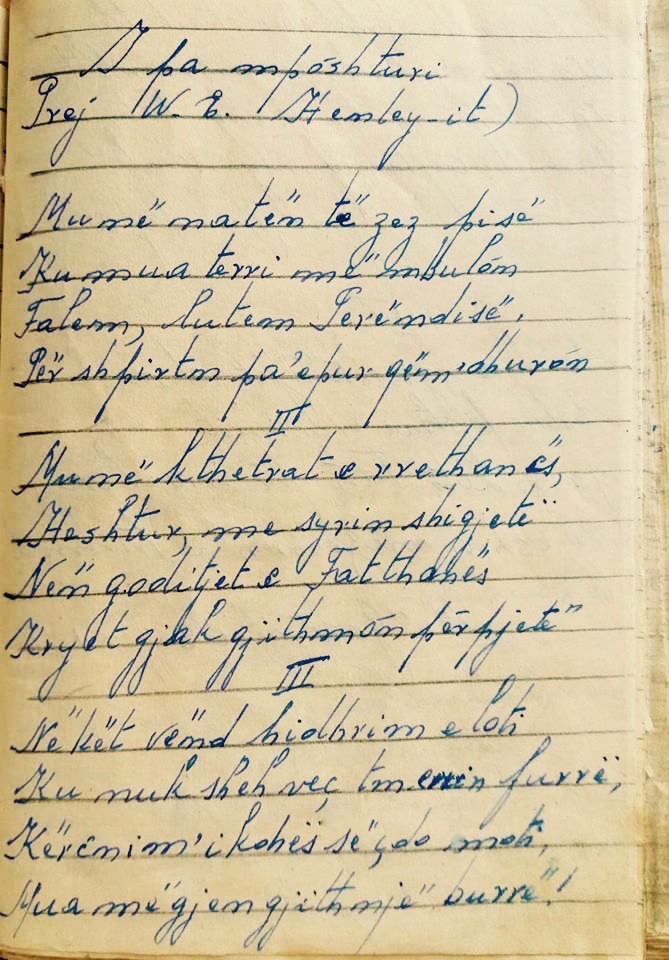 I pa mposhturi
Prej W. E. Henley-it)
Mu në natën të zez pisë
Ku mua terri më mbulón
Falem, lutem Perëndisë.
Për shpirtn pa'epur që m'dhurón
II
Mu në kthetrat e rrethanës,
Heshtur, me syrin shigjetë
Nën goditjet e Fatthanës
Kryet gjak gjithmón përpjetë
III
Në kët vënd hidhrim e loti
Ku nuk sheh veç tmerrin furrë,
Kërcnim'i kohës së çdo moti,
Mua më gjen gjithnjë burrë!